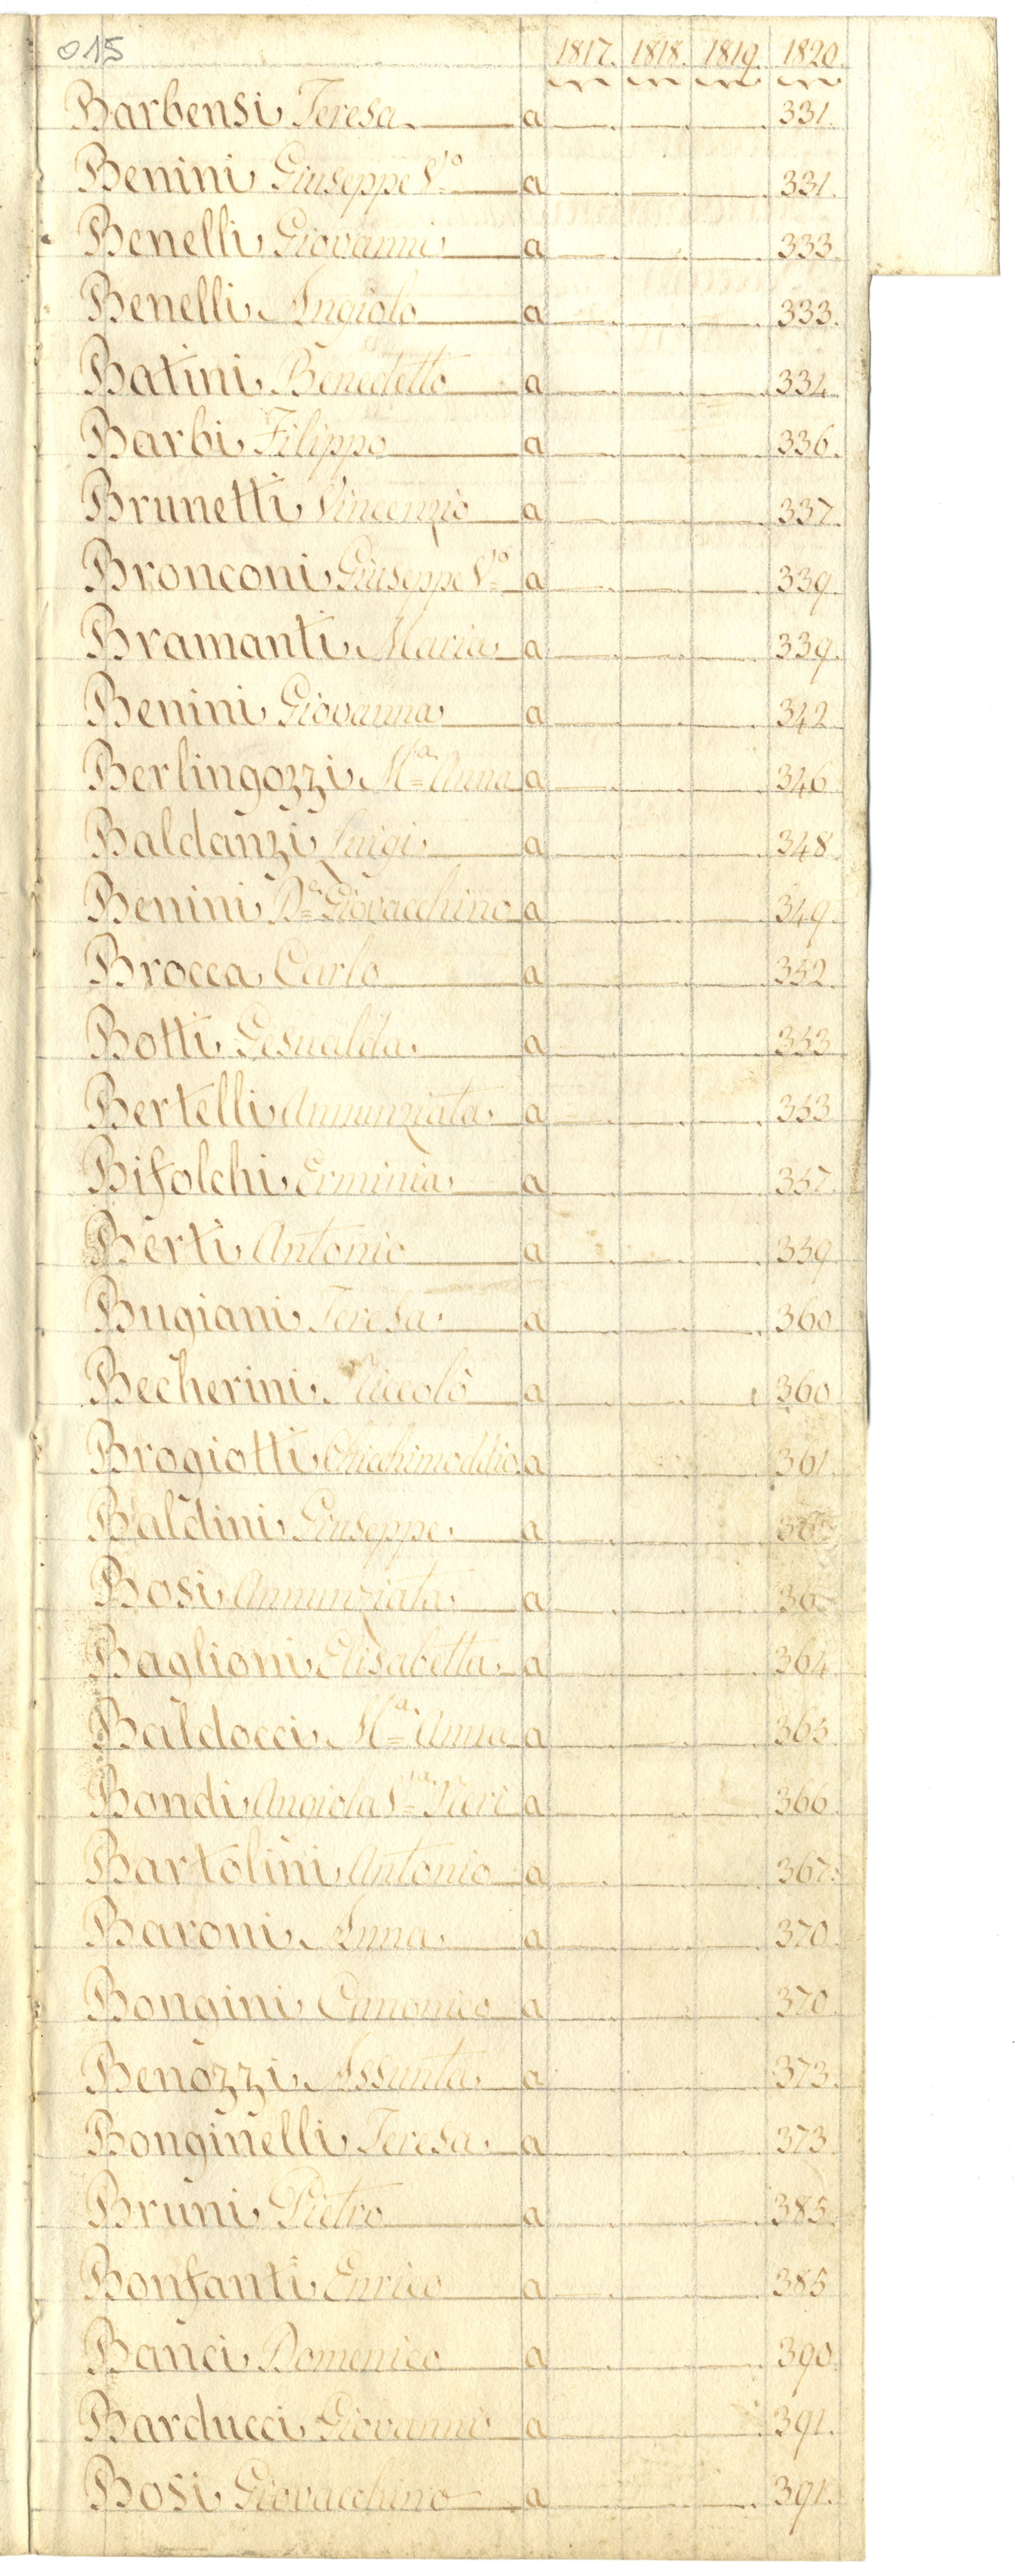 015 1817. 1818. 1819. 1820.
Barbensi Teresa a 331.
Benini Giuseppe V.º a 331.
Benelli Giovanni a 333.
Benelli Angiolo a 333.
Batini Benedetto a 334
Barbi Filippo a 336.
Brunetti Vincenzio a 337.
Bronconi Giuseppe V.º a 339.
Bramanti Maria a 339.
Benini Giovanna a 342
Berlingozzi Mª Anna a 346
Baldanzi Luigi a 348.
Benini Giovacchino a 349.
Brocca Carlo a 352.
Botti Gesualda a 353
Bertelli Annunziata a 353
Bifolchi Erminia a 357.
Berti Antonio a 359
Bugiani Teresa a 360
Becherini Niccolò a 360
Brogiotti a 361
Baldini Giuseppe a
Bosi Annunziata a
Baglioni Elisabetta a 364
Baldocci Mª Anna a 365
Bondi Angiola Vª Neri a 366
Bartolini Antonio a 367.
Baroni Anna a 370.
Bongini Canonico a 370
Benozzi Assunta a 373.
Bonginelli Teresa a 373
Bruni Pietro a 385.
Bonfanti Enrico a 385
Banci Domenico a 390
Barducci Giovanni a 391.
Bosi Giovacchino a 391.